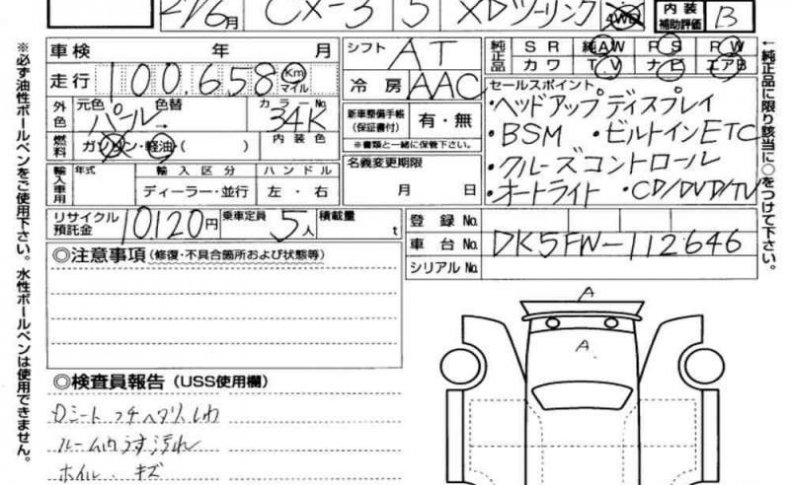 27/6月 CX-3 5 XDツーリング 4WD 内装補助評価 B
車検 年 月
走行 100,658 Km マイル
外色 元色 パール 色替 カラーNo. 34K
燃料 ガソリン・軽油・( ) 内装色
輸入車用 年式 輸入区分 ディーラー・並行 ハンドル 左・右
リサイクル預託金 10,120円 乗車定員 5人 積載量 t
シフト AT
冷房 AAC
新車整備手帳(保証書付) 有・無
※書類と一緒に保管下さい。
名義変更期限
月 日
純正品 SR 純AW PS PW
カワ TV ナビ エアB
セールスポイント
・ヘッドアップディスプレイ
・BSM ・ビルトインETC
・クルーズコントロール
・オートライト ・CD/DVD/TV
登録No.
車台No. DK5FW-112646
シリアルNo.
◎注意事項(修復・不具合箇所および状態等)
◎検査員報告(USS使用欄)
Dシート フチヘタリ、しわ
ルーム内うす汚れ
ホイル、キズ
A
A
※必ず油性ボールペンをご使用下さい。水性ボールペンは使用できません。
←純正品に限り該当に○をつけて下さい。